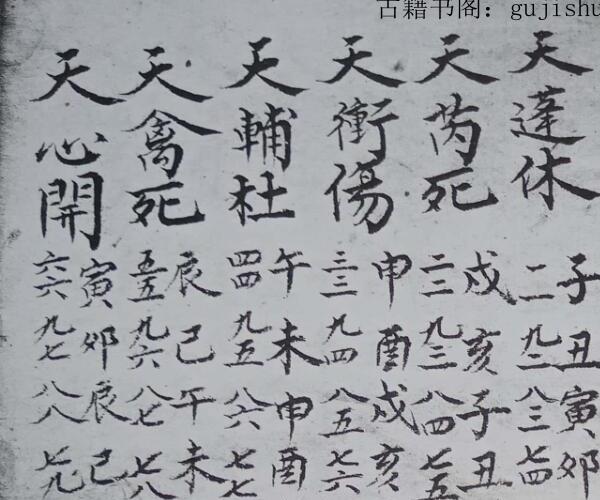 古籍书阁：gujishu
天蓬休
子丑寅卯
一一九二八三七四
天芮死
戌亥子丑
二二九三八四七五
天衝傷
申酉戌亥
三三九四八五七六
天輔杜
午未申酉
四四九五八六七七
天禽死
辰巳午未
五五九六八七七八
天心開
寅卯辰巳
六六九七八八七九